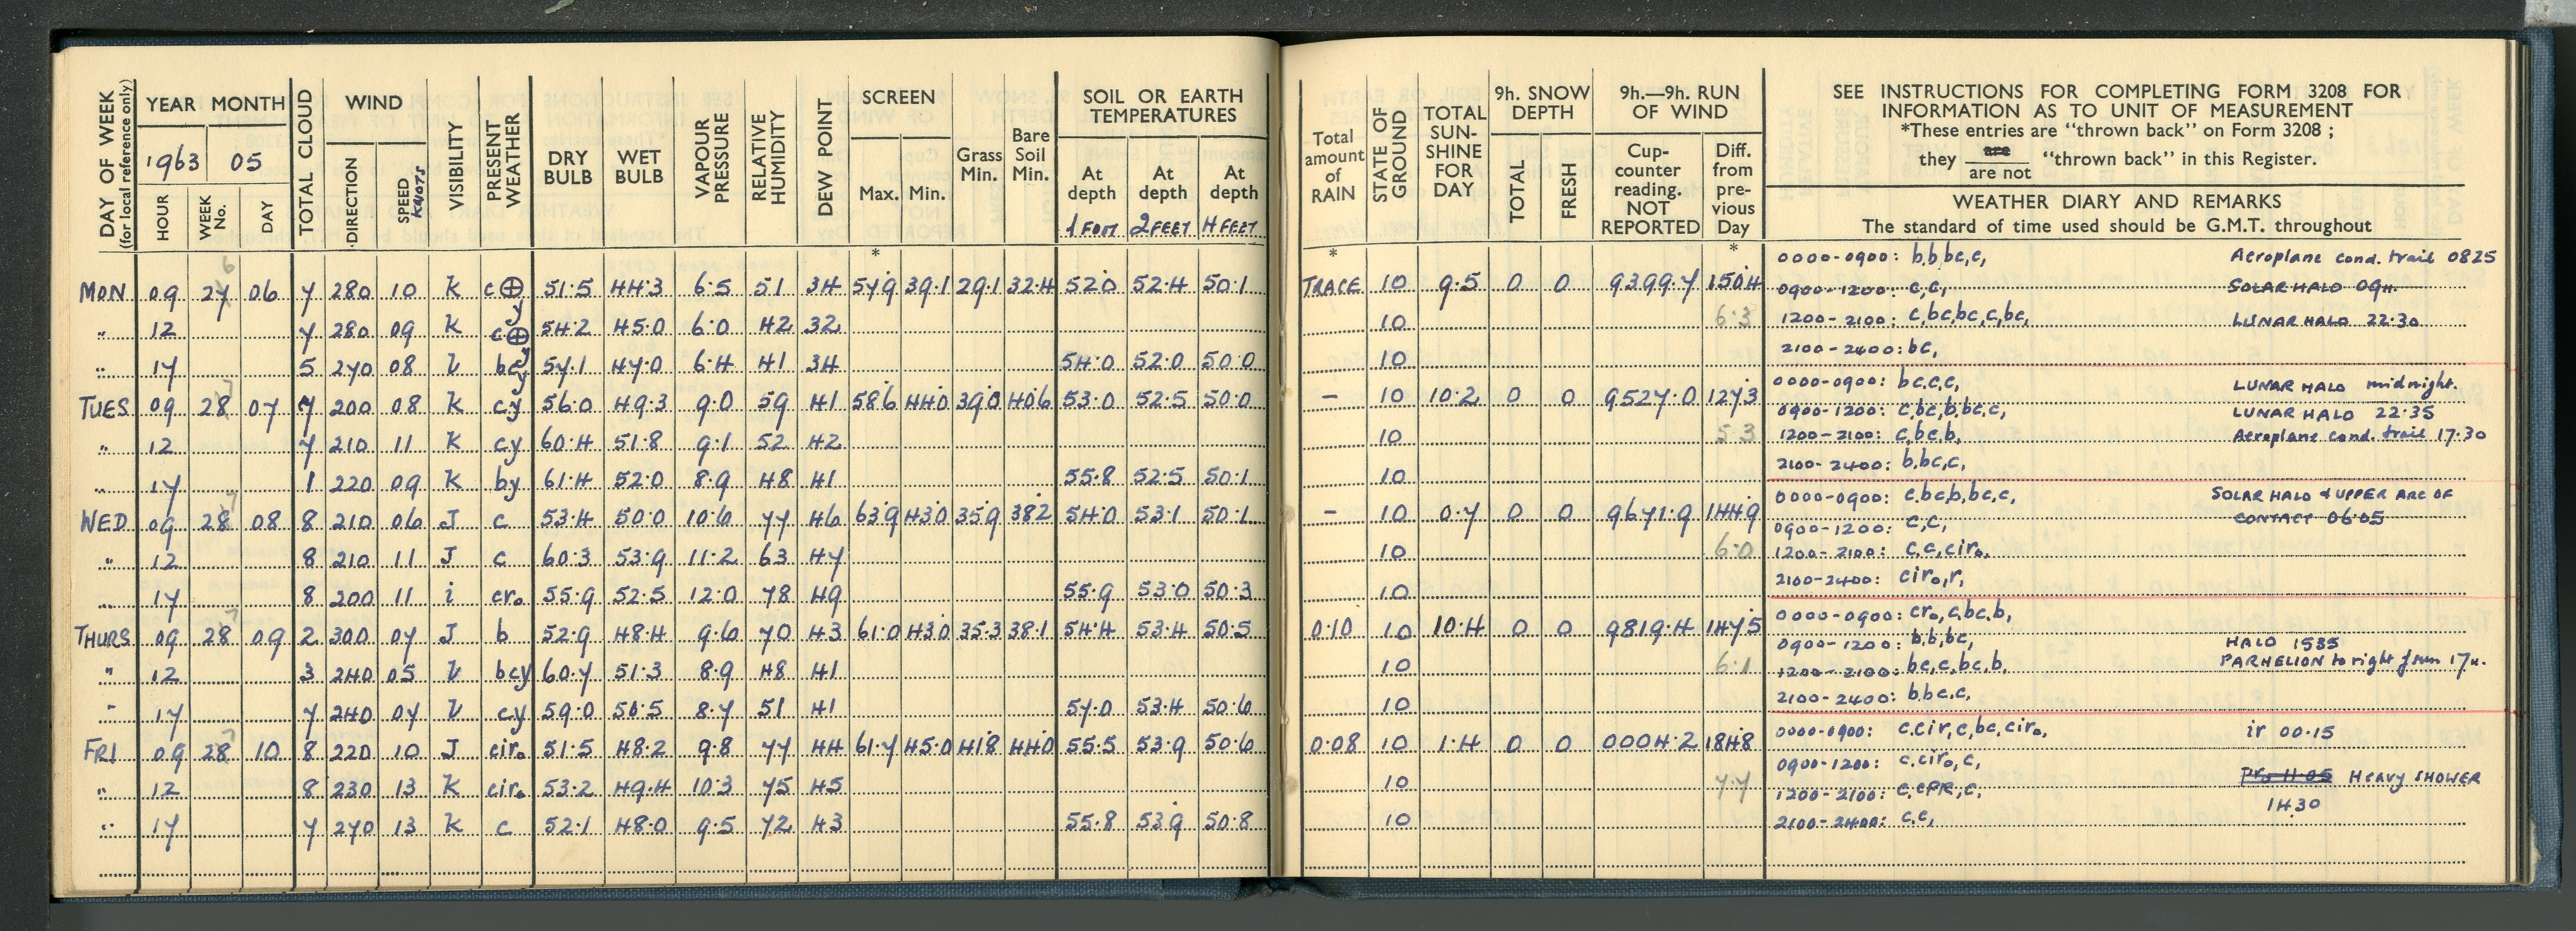 DAY OF WEEK (for local reference only)
YEAR MONTH
1963 05
HOUR WEEK No. DAY
TOTAL CLOUD
WIND
DIRECTION SPEED KNOTS
VISIBILITY
PRESENT WEATHER
DRY BULB
WET BULB
VAPOUR PRESSURE
RELATIVE HUMIDITY
DEW POINT
SCREEN
Max. Min.
Grass Min.
Bare Soil Min.
SOIL OR EARTH TEMPERATURES
At depth 1 FOOT At depth 2 FEET At depth 4 FEET
*
MON 09 27 6 06 7 280 10 K c⊕y 51.5 44.3 6.5 51 34 57.9 39.1 29.1 32.4 52.0 52.4 50.1
" 12 7 280 09 K c⊕y 54.2 45.0 6.0 42 32
" 17 5 270 08 V bcy 57.1 47.0 6.4 41 34 54.0 52.0 50.0
TUES 09 28 7 07 7 200 08 K cy 56.0 49.3 9.0 59 41 58.6 44.0 39.0 40.6 53.0 52.5 50.0
" 12 7 210 11 K cy 60.4 51.8 9.1 52 42
" 17 1 220 09 K by 61.4 52.0 8.9 48 41 55.8 52.5 50.1
WED 09 28 7 08 8 210 06 J c 53.4 50.0 10.6 77 46 63.9 43.0 35.9 38.2 54.0 53.1 50.1
" 12 8 210 11 J c 60.3 53.9 11.2 63 47
" 17 8 200 11 i cr₀ 55.9 52.5 12.0 78 49 55.9 53.0 50.3
THURS 09 28 7 09 2 300 07 J b 52.9 48.4 9.6 70 43 61.0 43.0 35.3 38.1 54.4 53.4 50.5
" 12 3 240 05 V bcy 60.7 51.3 8.9 48 41
" 17 7 240 07 V cy 59.0 50.5 8.7 51 41 57.0 53.4 50.6
FRI 09 28 7 10 8 220 10 J cir₀ 51.5 48.2 9.8 77 44 61.7 45.0 41.8 44.0 55.5 53.9 50.6
" 12 8 230 13 K cir₀ 53.2 49.4 10.3 75 45
" 17 7 270 13 K c 52.1 48.0 9.5 72 43 55.8 53.9 50.8
Total amount of RAIN
STATE OF GROUND
TOTAL SUN-SHINE FOR DAY
9h. SNOW DEPTH
TOTAL FRESH
9h.—9h. RUN OF WIND
Cup-counter reading. NOT REPORTED
Diff. from pre-vious Day
* *
SEE INSTRUCTIONS FOR COMPLETING FORM 3208 FOR
INFORMATION AS TO UNIT OF MEASUREMENT
*These entries are "thrown back" on Form 3208 ;
they are / are not "thrown back" in this Register.
WEATHER DIARY AND REMARKS
The standard of time used should be G.M.T. throughout
0000-0900: b,b,bc,c, Aeroplane cond. trail 0825
TRACE 10 9.5 0 0 9399.7 150.4
0900-1200: c,c, SOLAR HALO 09H.
10 6.3 1200-2100: c,bc,bc,c,bc, LUNAR HALO 22.30
10 2100-2400: bc,
0000-0900: bc,c,c, LUNAR HALO midnight.
— 10 10.2 0 0 9527.0 127.3
0900-1200: c,bc,b,bc,c, LUNAR HALO 22.35
10 5.3 1200-2100: c,bc,b, Aeroplane cond. trail 17.30
10 2100-2400: b,bc,c,
0000-0900: c,bc,b,bc,c, SOLAR HALO & UPPER ARC OF
— 10 0.7 0 0 9671.9 144.9
CONTACT 06.05
0900-1200: c,c,
10 6.0 1200-2100: c,c,cir₀.
10 2100-2400: cir₀,r,
0000-0900: cr₀,c,bc,b,
0.10 10 10.4 0 0 9819.4 147.5
0900-1200: b,b,bc, HALO 1535
10 6.1 1200-2100: bc,c,bc,b, PARHELION to right of sun 17H.
10 2100-2400: b,bc,c,
0000-0900: c,cir,c,bc,cir₀, ir 00.15
0.08 10 1.4 0 0 0004.2 184.8
0900-1200: c,cir₀,c,
10 7.7 pr₀ 11.05 HEAVY SHOWER
1200-2100: c,cPR,c, 14.30
10 2100-2400: c,c,